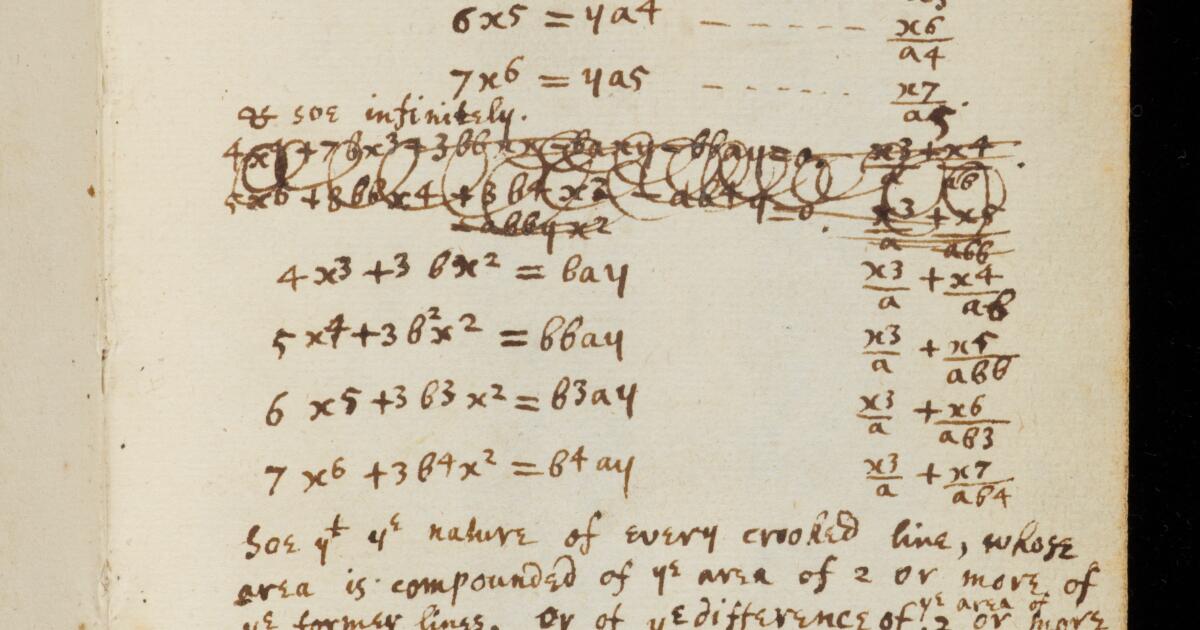 6x5 = ya4 - - - - - - - x6/a4
7x6 = ya5 - - - - - - - x7/a5.
& soe infinitely.
4x3 + 3bx2 = bay x3/a + x4/ab
5x4 + 3b2x2 = bbay x3/a + x5/abb
6x5 + 3b3x2 = b3ay x3/a + x6/ab3
7x6 + 3b4x2 = b4ay x3/a + x7/ab4
Soe yt ye nature of every crooked line, whose
area is compounded of ye area of 2 or more of
ye former lines, or of ye difference of ye area of 2 or more